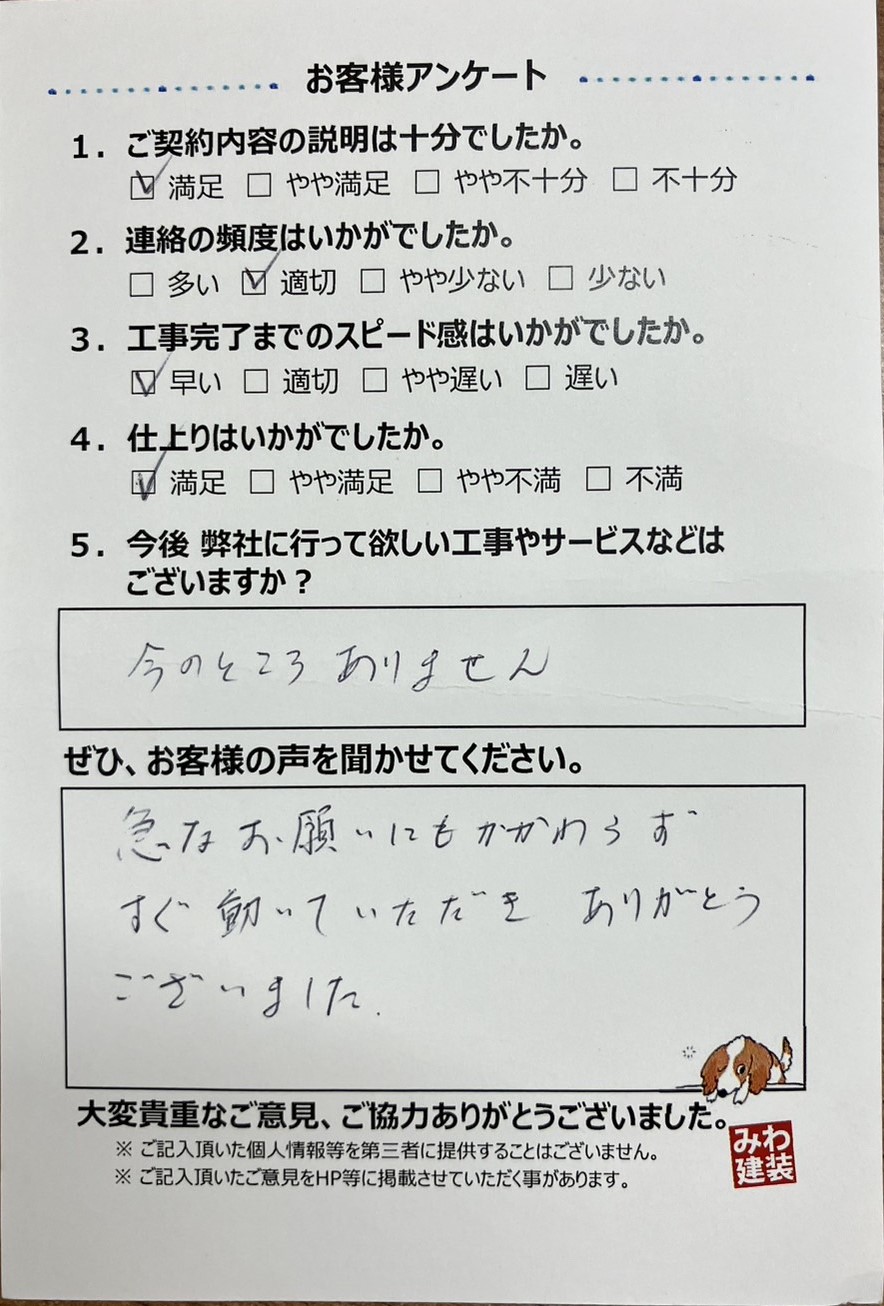 お客様アンケート
1. ご契約内容の説明は十分でしたか。
☑ 満足 □ やや満足 □ やや不十分 □ 不十分
2. 連絡の頻度はいかがでしたか。
□ 多い ☑ 適切 □ やや少ない □ 少ない
3. 工事完了までのスピード感はいかがでしたか。
☑ 早い □ 適切 □ やや遅い □ 遅い
4. 仕上りはいかがでしたか。
☑ 満足 □ やや満足 □ やや不満 □ 不満
5. 今後 弊社に行って欲しい工事やサービスなどは
ございますか？
今のところ ありません
ぜひ、お客様の声を聞かせてください。
急なお願いにもかかわらず
すぐ動いていただき ありがとう
ございました.
大変貴重なご意見、ご協力ありがとうございました。
※ ご記入頂いた個人情報等を第三者に提供することはございません。
※ ご記入頂いたご意見をHP等に掲載させていただく事があります。
みわ
建装